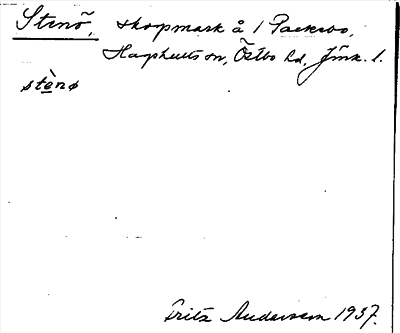 Stenö, skogsmark å 1 Packebo,
Hagshults sn, Östbo hd, Jönk. l.
stènø
Fritz Andersson 1937.